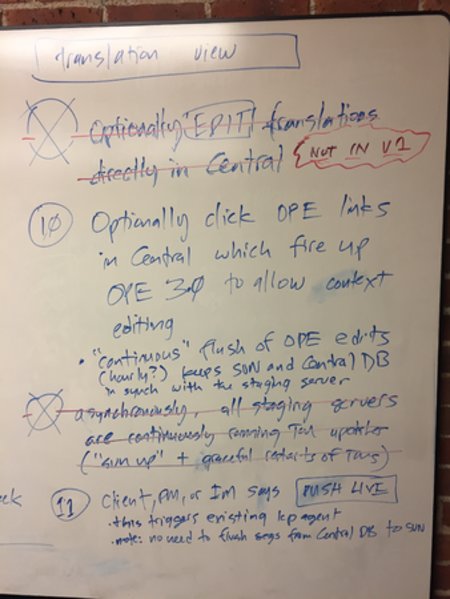 translation view
Optionally EDIT translations
directly in Central
NOT IN V1
10 Optionally click OPE links
in Central which fire up
OPE 3.0 to allow context
editing
• "continuous" flush of OPE edits
(hourly?) keeps SVN and Central DB
in synch with the staging server
asynchronously, all staging servers
are continuously running updater
("svn up" + graceful restarts of
11 Client, PM, or IM says PUSH LIVE
• this triggers existing agent
• note: no need to flush segs from Central DB to SVN